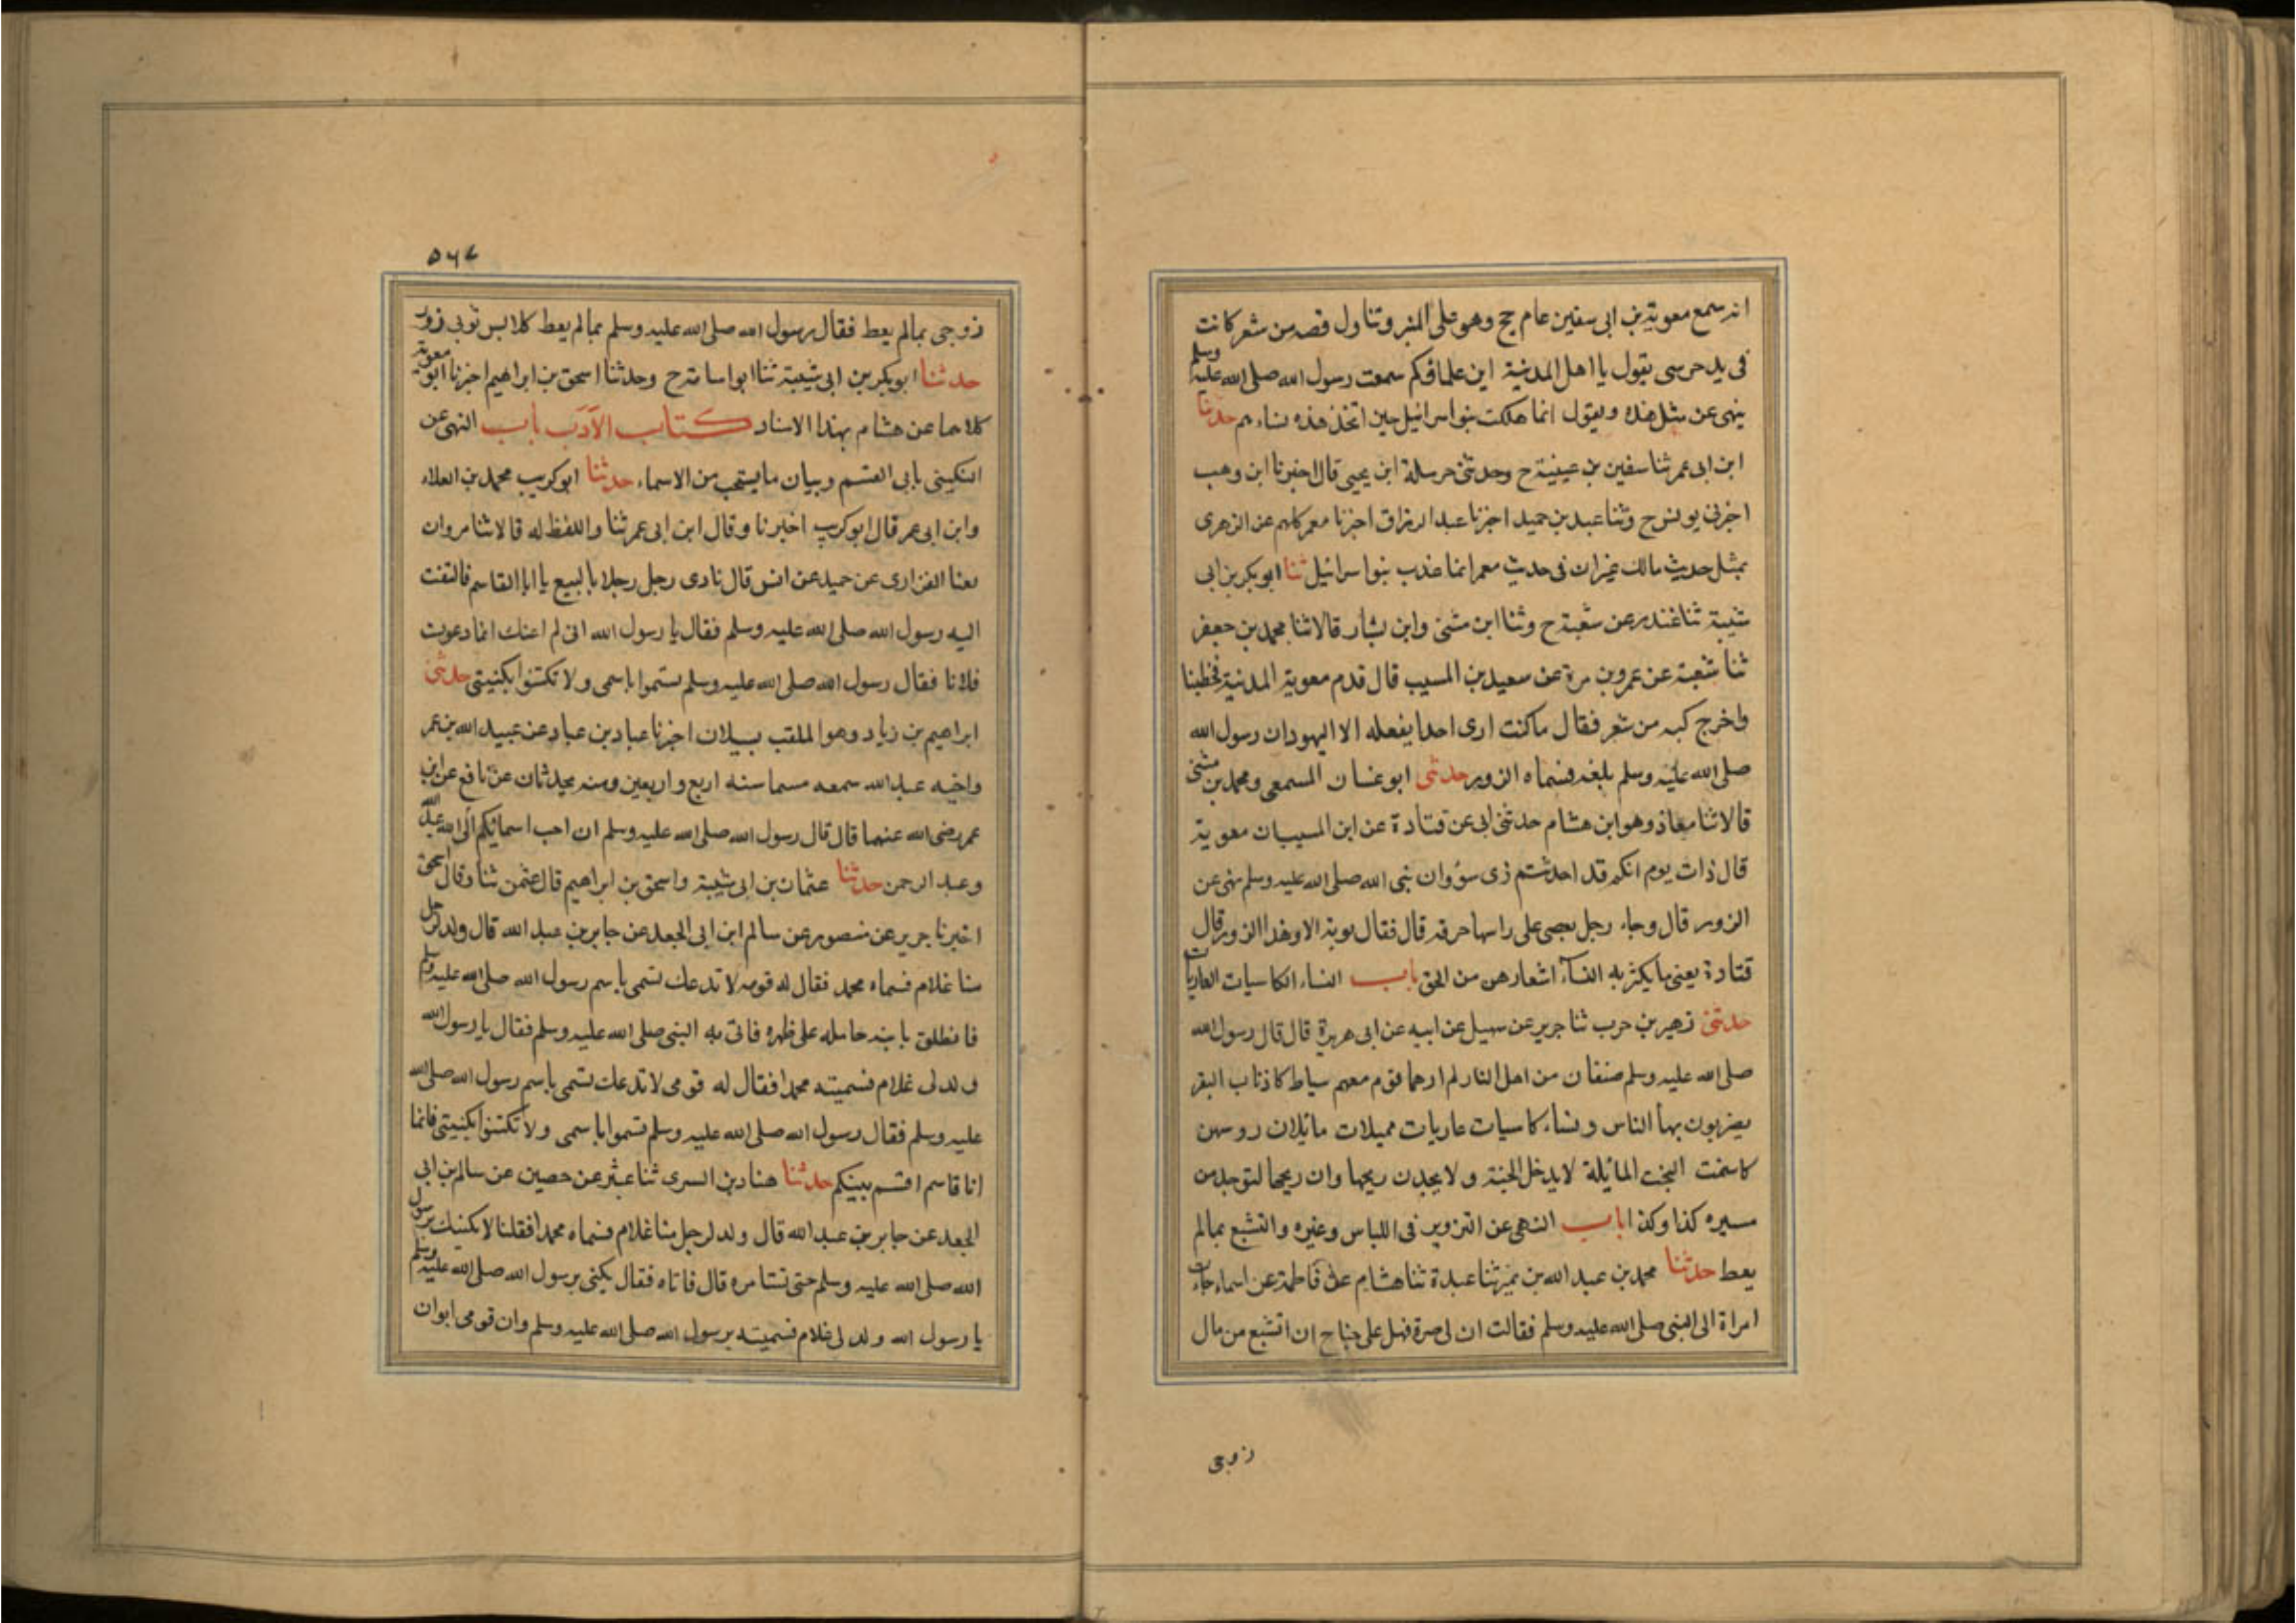 انه سمع معوية بن ابى سفين عام حج وهو على المنبر وتناول قصه من شعر كانت
فى يد حرسى يقول يا اهل المدينة اين علماؤكم سمعت رسول الله صلى الله عليه وسلم
ينهى عن مثل هذه ويقول انما هلكت بنوا سرائيل حين اتخذ هذه نساءهم حدثنا
ابن ابى عمر ثنا سفين بن عيينة ح وحدثنى حرملة ابن يحيى قال اخبرنا ابن وهب
اخبرنى يونس ح وثنا عبد بن حميد اخبرنا عبد الرزاق اخبرنا معمر كلهم عن الزهرى
بمثل حديث مالك غيران فى حديث معمر انما عذب بنوا سرائيل ثنا ابو بكر بن ابى
شيبة ثنا غندر عن شعبة ح وثنا ابن مثنى وابن بشار قالا ثنا محمد بن جعفر
ثنا شعبة عن عمرو بن مرة عن سعيد بن المسيب قال قدم معوية المدينة فخطبنا
واخرج كبه من شعر فقال ما كنت ارى احدا يفعله الا اليهود ان رسول الله
صلى الله عليه وسلم بلغه فسماه الزور حدثنى ابو غسان المسمعى ومحمد بن مثنى
قالا ثنا معاذ وهو ابن هشام حدثنى ابى عن قتادة عن ابن المسيب ان معوية
قال ذات يوم انكم قد احدثتم زى سؤ وان نبى الله صلى الله عليه وسلم نهى عن
الزور قال وجاء رجل بعصى على راسها خرقه قال فقال معوية الا وهذا الزور قال
قتادة يعنى ما يكثر به النساء اشعارهن من الخرق باب النساء الكاسيات العاريات
حدثنى زهير بن حرب ثنا جرير عن سهيل عن ابيه عن ابى هريرة قال قال رسول الله
صلى الله عليه وسلم صنفان من اهل النار لم ارهما قوم معهم سياط كاذناب البقر
يضربون بها الناس ونساء كاسيات عاريات مميلات مائلات روسهن
كاسنمت البخت المائلة لا يدخل الجنة ولا يجدن ريحها وان ريحها لتوجد من
مسيره كذا وكذا باب النهى عن التزوير فى اللباس وغيره والتشبع بمالم
يعط حدثنا محمد بن عبد الله بن نمير ثنا عبدة ثنا هشام عن فاطمة عن اسماء جاءت
امراة الى النبى صلى الله عليه وسلم فقالت ان لى ضرة فهل على جناح ان اتشبع من مال
زوجى
٥٦٧
زوجى بمالم يعط فقال رسول الله صلى الله عليه وسلم بمالم يعط كلابس ثوبى زور
حدثنا ابو بكر بن ابى شيبة ثنا ابو اسامة ح وحدثنا اسحق بن ابراهيم اخبرنا ابو معوية
كلاهما عن هشام بهذا الاسناد كتاب الآدب باب النهى عن
التكينى بابى القسم وبيان ما يستحب من الاسماء حدثنا ابو كريب محمد بن العلاء
وابن ابى عمر قال ابو كريب اخبرنا وقال ابن ابى عمر ثنا واللفظ له قالا ثنا مروان
يعنا الفزارى عن حميد عن انس قال نادى رجل رجلا بالبيع يا ابا القاسم فالتفت
اليه رسول الله صلى الله عليه وسلم فقال يا رسول الله انى لم اعنك انما دعوت
فلانا فقال رسول الله صلى الله عليه وسلم تسموا باسمى ولا تكتنوا بكنيتى حدثنى
ابراهيم بن زياد وهو الملقب بسبلان اخبرنا عباد بن عباد عن عبيد الله بن عمر
واخيه عبد الله سمعه منهما سنه اربع واربعين ومئه يحدثان عن نافع عن ابن
عمر رضى الله عنهما قال قال رسول الله صلى الله عليه وسلم ان احب اسمائكم الى الله عبد الله
وعبد الرحمن حدثنا عثمان بن ابى شيبة واسحق بن ابراهيم قال عثمن ثنا وقال اسحق
اخبرنا جرير عن منصور عن سالم ابن ابى الجعد عن جابر بن عبد الله قال ولد لرجل
منا غلام فسماه محمد فقال له قومه لا تدعك تسمى باسم رسول الله صلى الله عليه وسلم
فانطلق بابنه حامله على ظهره فاتى به النبى صلى الله عليه وسلم فقال يا رسول الله
ولد لى غلام فسميته محمدا فقال له قومى لا تدعك تسمى باسم رسول الله صلى الله
عليه وسلم فقال رسول الله صلى الله عليه وسلم تسموا باسمى ولا تكتنوا بكنيتى فانما
انا قاسم اقسم بينكم حدثنا هناد بن السرى ثنا عبثر عن حصين عن سالم بن ابى
الجعد عن جابر بن عبد الله قال ولد لرجل منا غلام فسماه محمدا فقلنا لا نكنيك برسول
الله صلى الله عليه وسلم حتى تستامره قال فاتاه فقال يكنى برسول الله صلى الله عليه وسلم
يا رسول الله ولد لى غلام فسميته برسول الله صلى الله عليه وسلم وان قومى ابوان